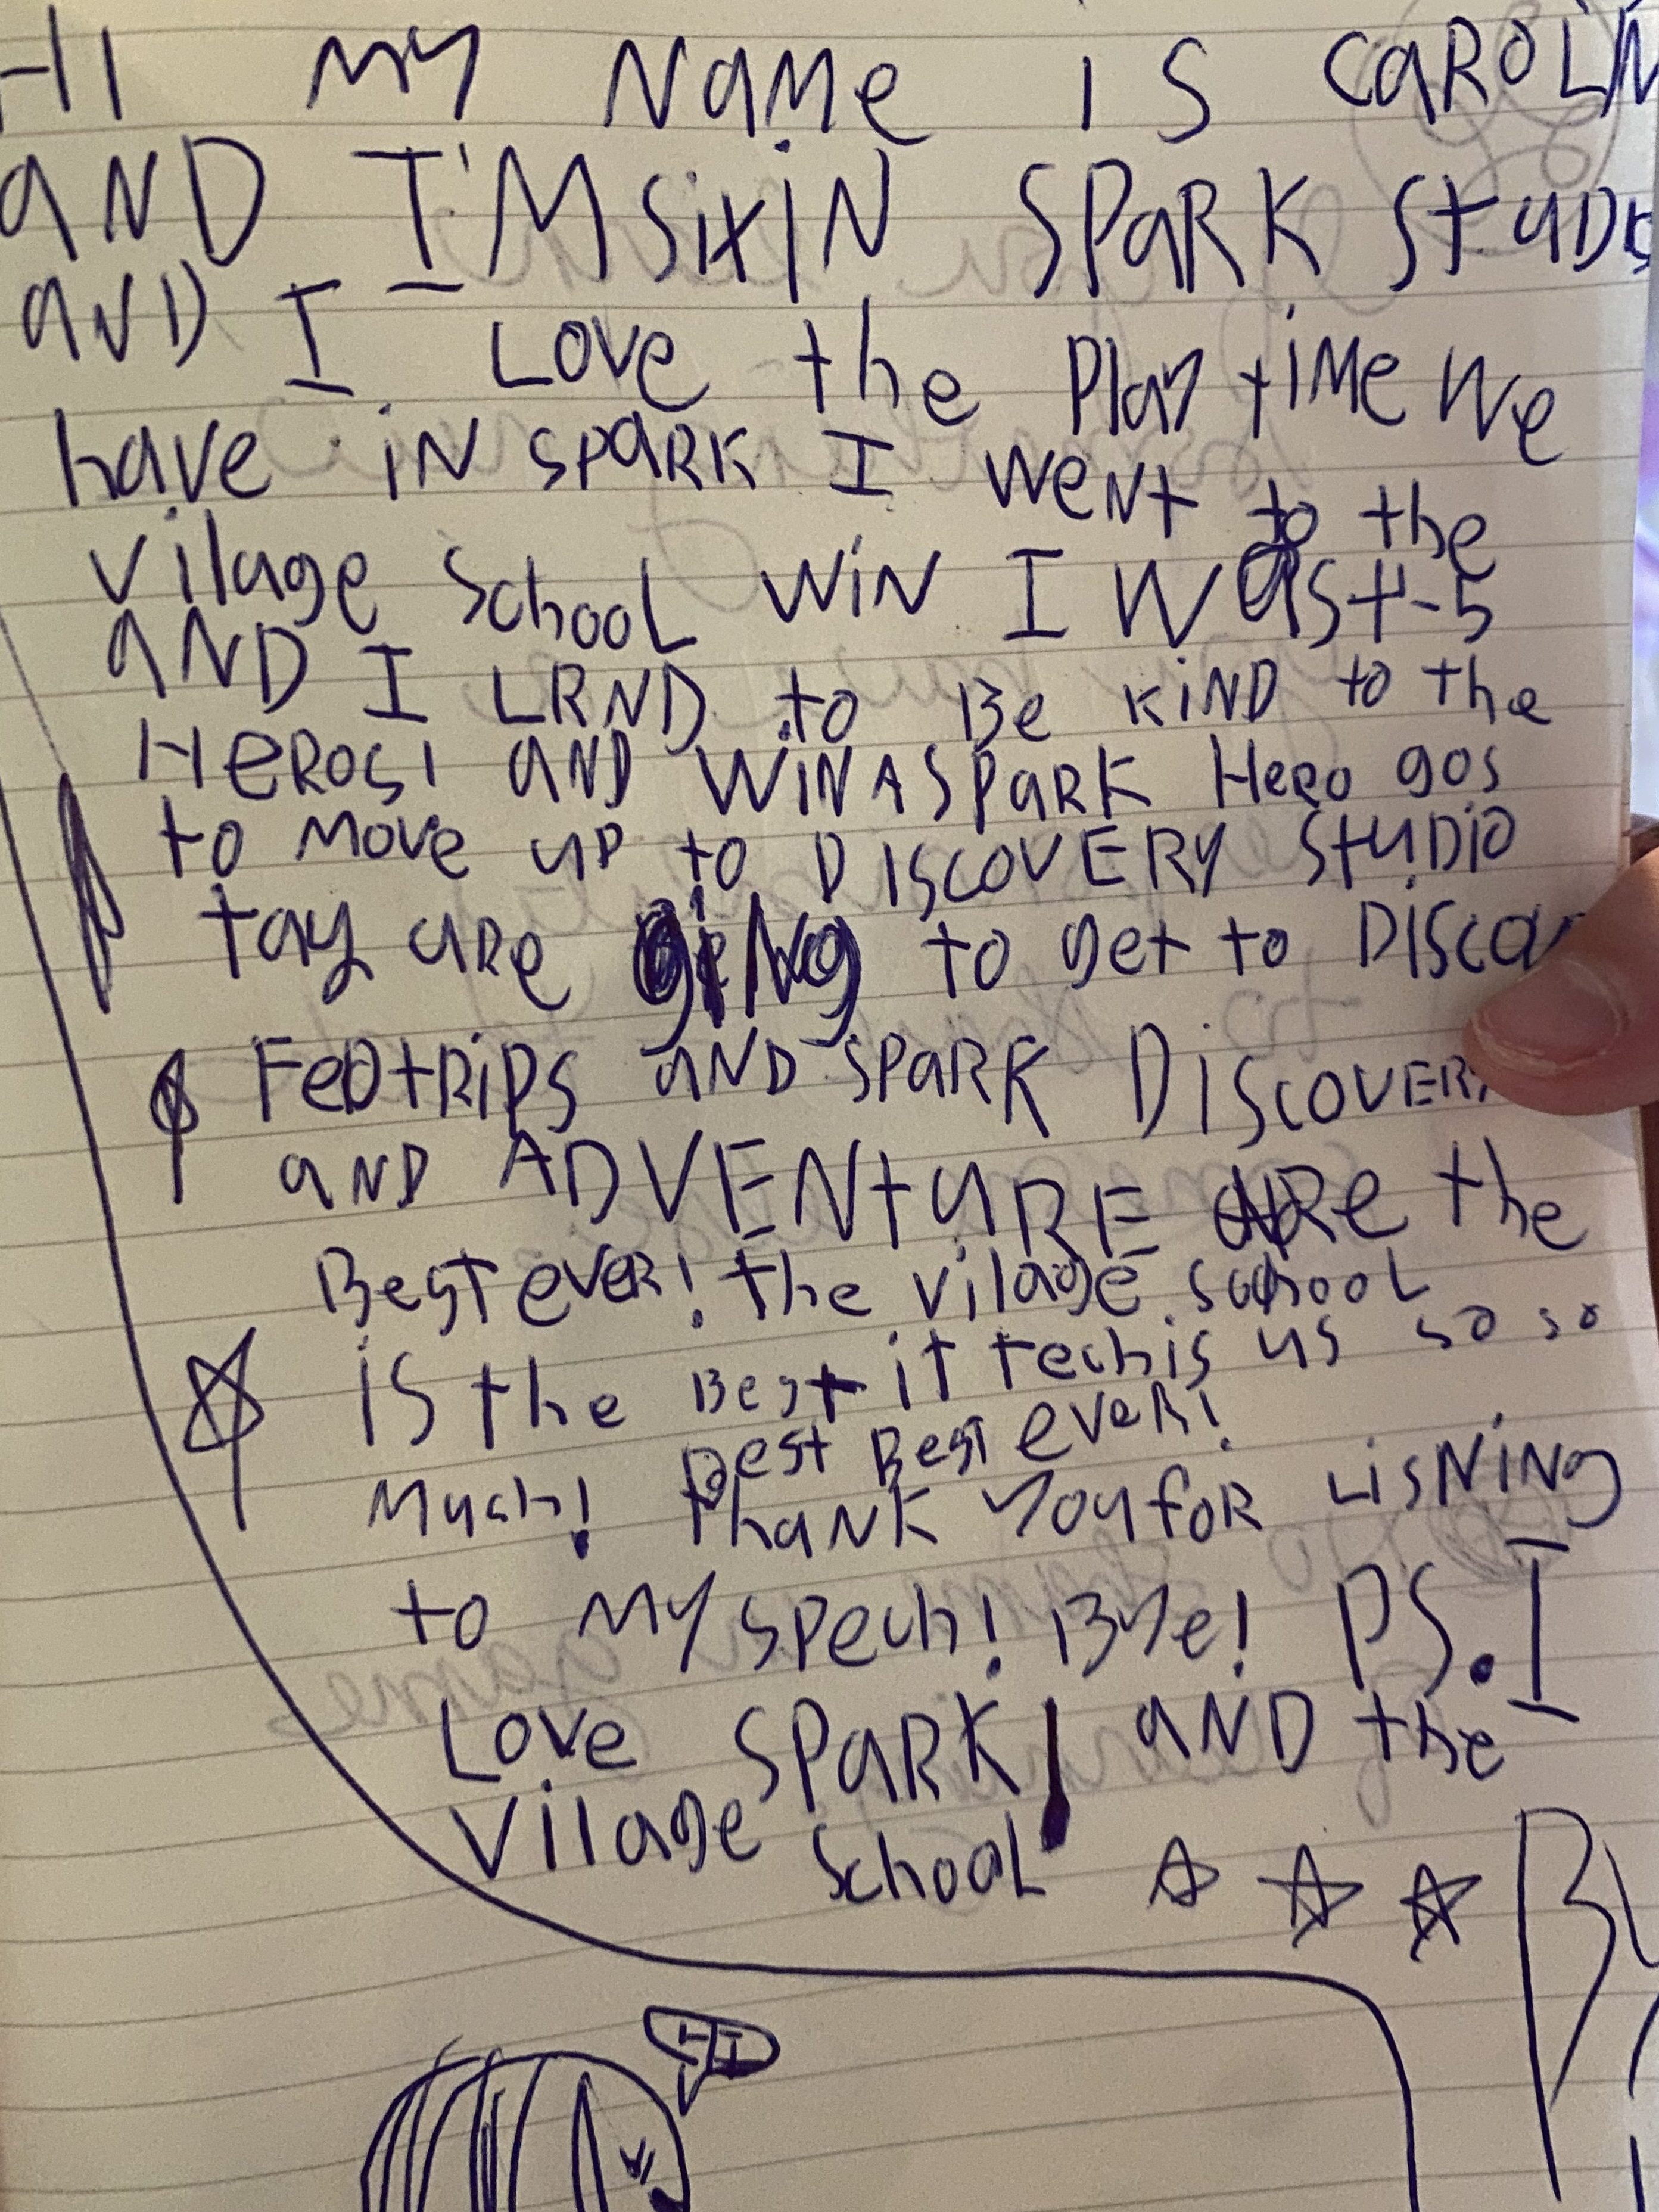 HI MY NAMe IS CAROLIN
AND I'M SixiN SPARK StUDE
AND I LOVe the Play tiMe We
have iN SPARK I WeNt to the
Vilage School WiN I WaSt-5
AND I LRND to Be KiND to the
HeROS! AND WiN A SPARK HeRo gos
to Move UP to DISCOVERY StUDiO
tay are giNg to get to DiSCOV
FeDtRiPS AND SPARK DiSCOVERY
AND ADVENtURE ARe the
BeST eVeR! the Vilage School
iS the BeSt it techis us so so
Much! Best BeST eVeR!
thANK YoU foR LisNiNg
to MY SPech! BYe! PS. I
LOVe SPARK! AND the
Vilage School
BY
HI